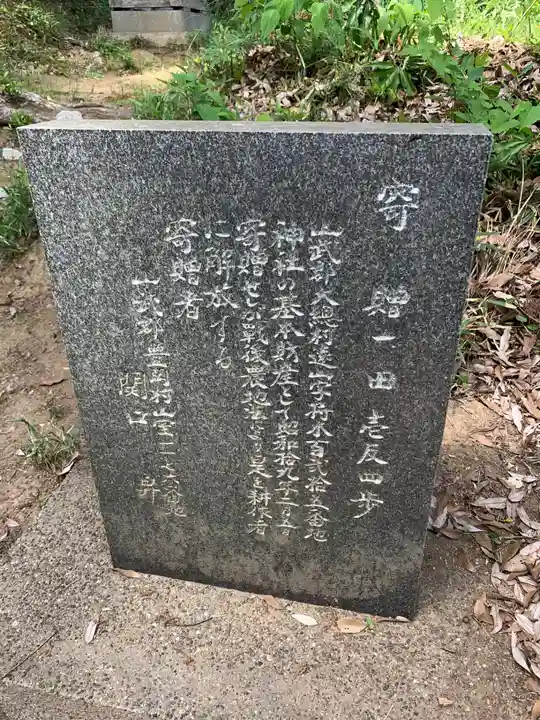 寄贈一田壱反四歩
山武郡大總村遠山字将木百弐拾五番地
神社の基本財産として昭和拾九年二月五日
寄贈せしが戦後農地法により是を耕作者
に解放する
寄贈者
山武郡豊岡村山室一一七六番地
関口 昇